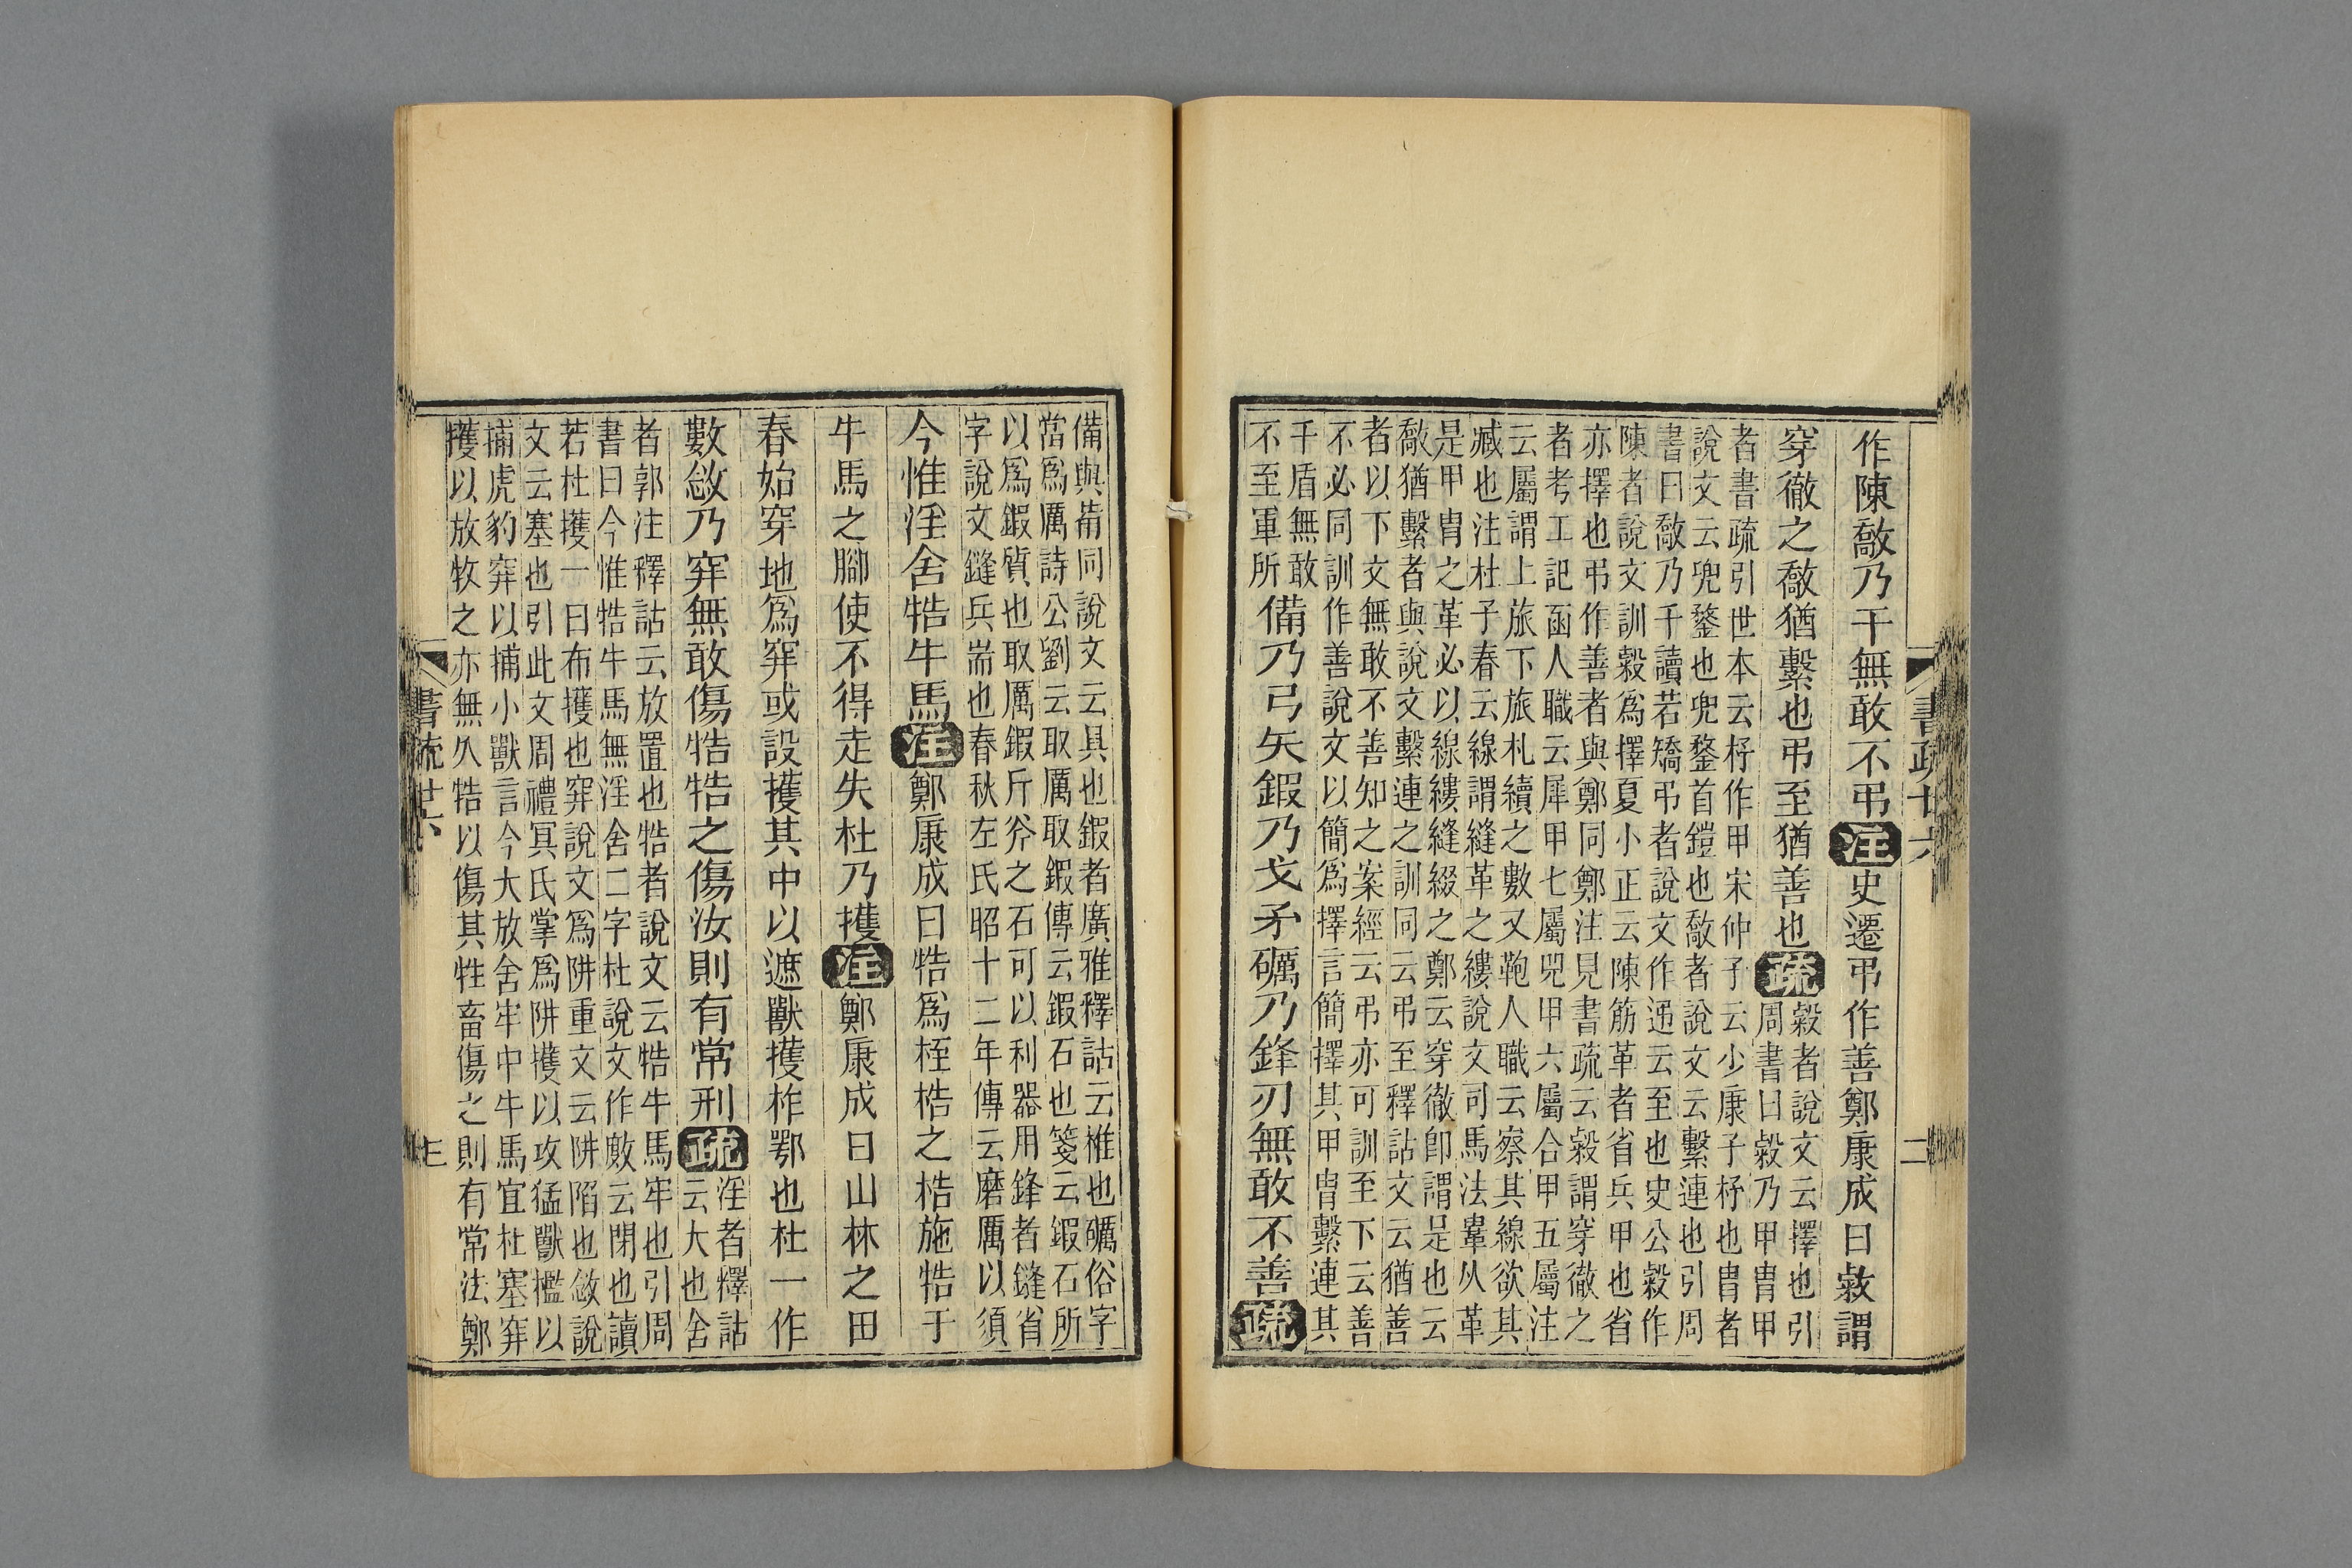 書疏廿六
二
作陳敿乃干無敢不弔注史遷弔作善鄭康成曰敹謂
穿徹之敿猶繫也弔至猶善也疏
敹者說文云擇也引
周書曰敹乃甲冑甲
者書疏引世本云杼作甲宋仲子云少康子杼也冑者
說文云兜鍪也兜鍪首鎧也敿者說文云繫連也引周
書曰敿乃干讀若矯弔者說文作𨑩云至也史公敹作
陳者說文訓敹爲擇夏小正云陳筋革者省兵甲也省
亦擇也弔作善者與鄭同鄭注見書疏云敹謂穿徹之
者考工記函人職云犀甲七屬兕甲六屬合甲五屬注
云屬謂上旅下旅札續之數又鞄人職云察其線欲其
臧也注杜子春云線謂縫革之縷說文司馬法輂从革
是甲冑之革必以線縷縫綴之鄭云穿徹卽謂是也云
敿猶繫者與說文繫連之訓同云弔至釋詁文云猶善
者以下文無敢不善知之案經云弔亦可訓至下云善
不必同訓作善說文以簡爲擇言簡擇其甲冑繫連其
干盾無敢
不至軍所
備乃弓矢鍜乃戈矛礪乃鋒刃無敢不善疏
備與葡同說文云具也鍜者廣雅釋詁云椎也礪俗字
當爲厲詩公劉云取厲取鍜傳云鍜石也箋云鍜石所
以爲鍜質也取厲鍜斤斧之石可以利器用鋒者鏠省
字說文鏠兵耑也春秋左氏昭十二年傳云磨厲以須
今惟淫舍牿牛馬注鄭康成曰牿爲桎梏之梏施牿于
牛馬之腳使不得走失杜乃擭注鄭康成曰山林之田
春始穿地爲穽或設擭其中以遮獸擭柞鄂也杜一作
敷敜乃穽無敢傷牿牿之傷汝則有常刑疏
淫者釋詁
云大也舍
者郭注釋詁云放置也牿者說文云牿牛馬牢也引周
書曰今惟牿牛馬無淫舍二字杜說文作敷云閉也讀
若杜擭一曰布擭也穽說文爲阱重文云阱陷也敜說
文云塞也引此文周禮冥氏掌爲阱擭以攻猛獸檻以
捕虎豹穽以捕小獸言今大放舍牢中牛馬宜杜塞穽
擭以放牧之亦無久牿以傷其牲畜傷之則有常法鄭
書疏廿六
三